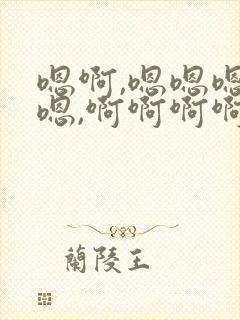 嗯啊,嗯嗯嗯
嗯,啊啊啊啊
蘭陵王